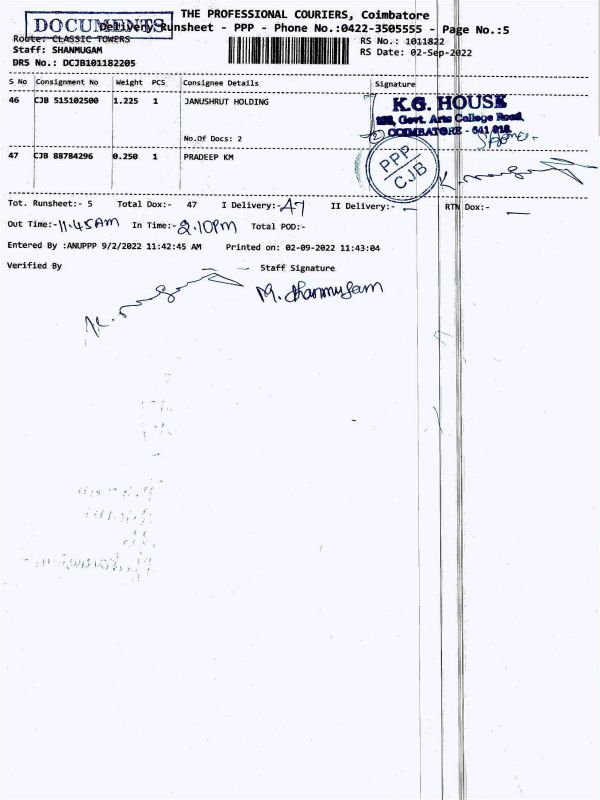 THE PROFESSIONAL COURIERS, Coimbatore
DOCUMENTS
Delivery Runsheet - PPP - Phone No.:0422-3505555 - Page No.:5
Route: CLASSIC TOWERS
RS No.: 1011822
Staff: SHANMUGAM
RS Date: 02-Sep-2022
DRS No.: DCJB101182205
S No Consignment No Weight PCS Consignee Details Signature
46 CJB 515102500 1.225 1 JANUSHRUT HOLDING
K.G. HOUSE
Govt. Arts College Road,
COIMBATORE - 641 018.
No.Of Docs: 2
2
47 CJB 88784296 0.250 1 PRADEEP KM
PPP
CJB
Tot. Runsheet:- 5 Total Dox:- 47 I Delivery:- 47 II Delivery:- — RTN Dox:- —
Out Time:- 11.45AM In Time:- 2.10PM Total POD:-
Entered By :ANUPPP 9/2/2022 11:42:45 AM Printed on: 02-09-2022 11:43:04
Verified By Staff Signature
M. Shanmugam